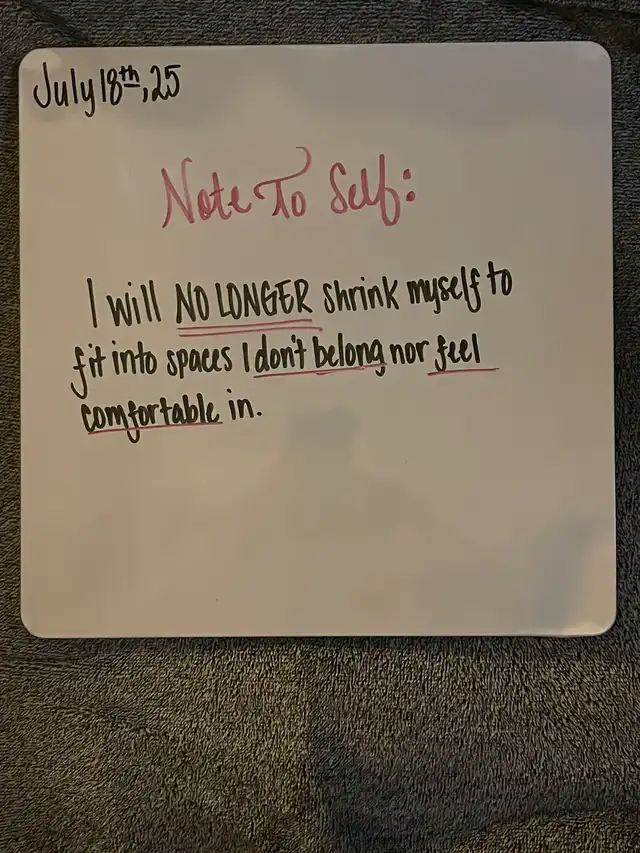 July 18th, 25
Note To Self:
I will NO LONGER shrink myself to
fit into spaces I don't belong nor feel
comfortable in.